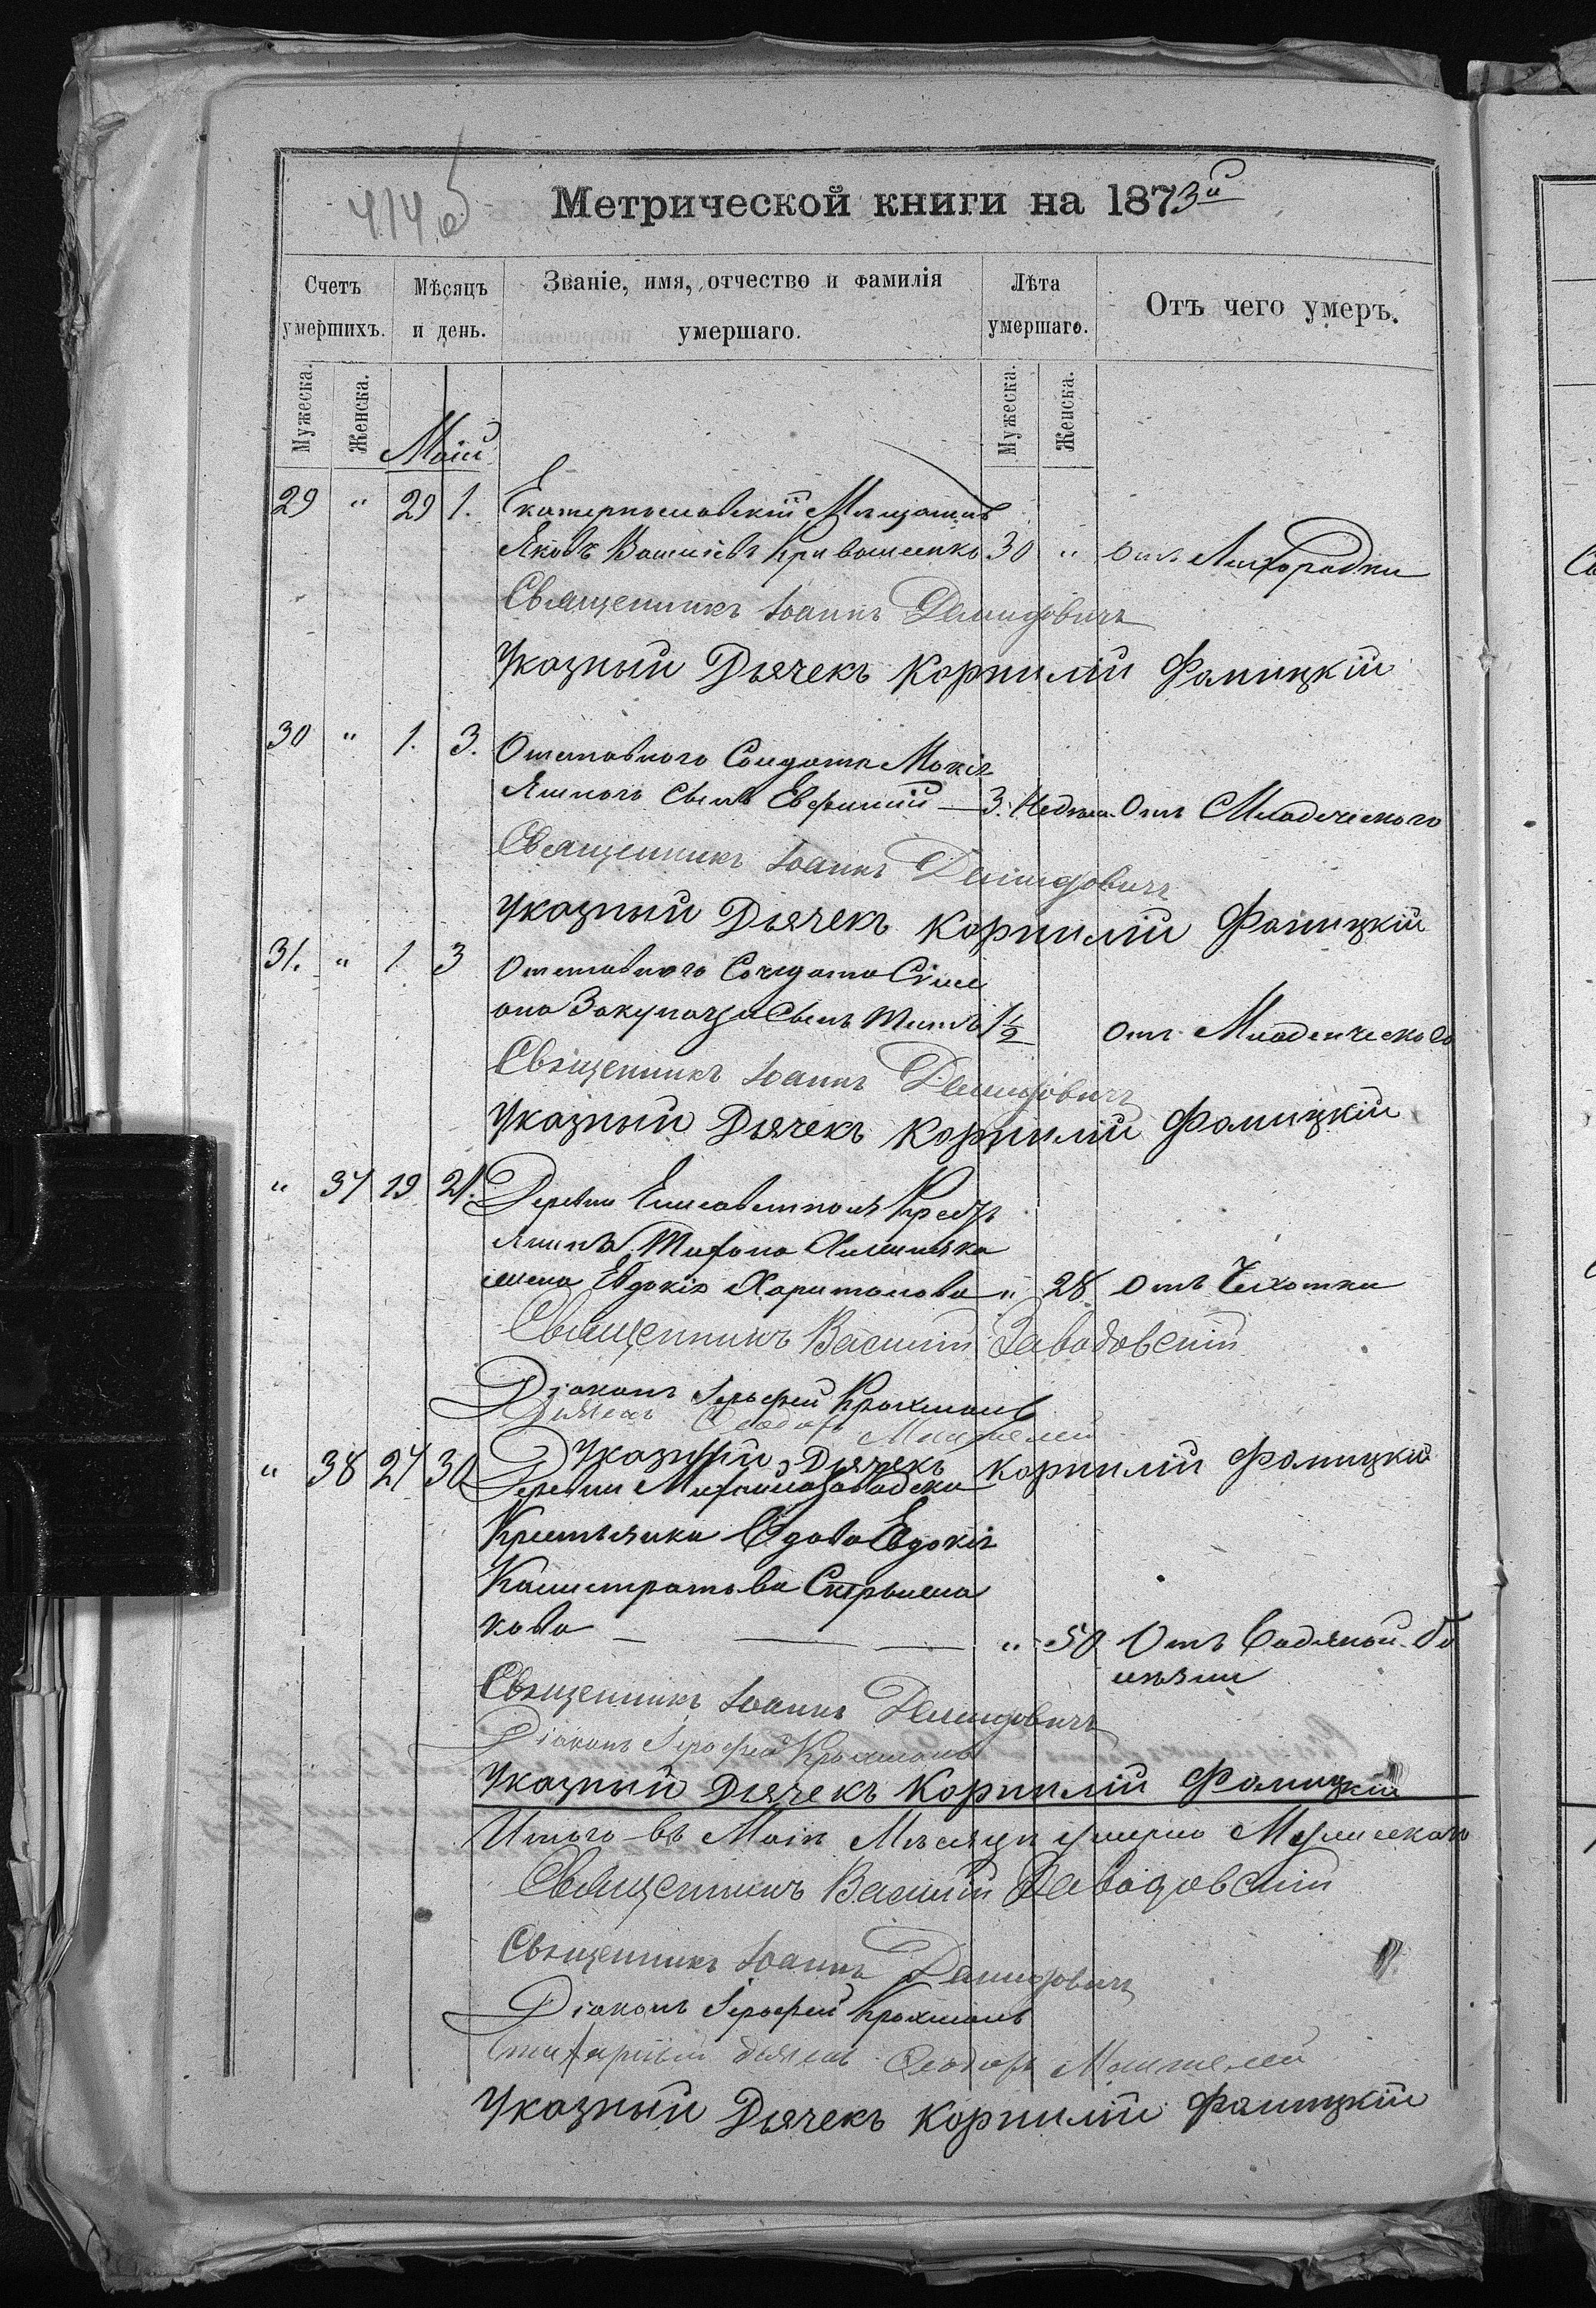 414 об
Метрической книги на 1873й
Счетъ умершихъ.
Мѣсяцъ и день.
Званіе, имя, отчество и фамилія умершаго.
Лѣта умершаго.
Отъ чего умеръ.
Мужеска. Женска. Мужеска. Женска.
Май
29 " 29 1. Екатеринославскій Мѣщанинъ
Яковъ Василіевъ 30 " отъ Лихорадки
Священникъ Іоаннъ Демидовичъ
Указный Дьячекъ Корнилій Фаницкій
30 " 1. 3. Отставного Солдата Мокія
сынъ Евфимій — 3. Недѣли. Отъ Младенческого
Священникъ Іоаннъ Демидовичъ
Указный Дьячекъ Корнилій Фаницкій
31. " 1 3 Отставного Солдата Симе
она сынъ Титъ 1½ отъ Младенческого
Священникъ Іоаннъ Демидовичъ
Указный Дьячекъ Корнилій Фаницкій
" 37 19 21. Деревни Елисаветполя Крестъ
янина Тихона
жена Евдокія Харитонова " 28 отъ Чихотки
Священникъ Василій Заводовскій
Діаконъ Іерофей Крохмаль
Дьячекъ Ѳеодоръ
Указный Дьячекъ Корнилій Фаницкій
" 38 27 30 Деревни
Крестьянка Вдова Евдокія
Калистратова
кова — — — " 50 Отъ Водяной бо
лѣзни
Священникъ Іоаннъ Демидовичъ
Діаконъ Іерофей Крохмаль
Указный Дьячекъ Корнилій Фаницкій
Итого въ Маіѣ Мѣсяцѣ умерло Мужескаго
Священникъ Василій Заводовскій
Священникъ Іоаннъ Демидовичъ
Діаконъ Іерофей Крохмаль
Стихарный дьячекъ Ѳеодоръ
Указный Дьячекъ Корнилій Фаницкій